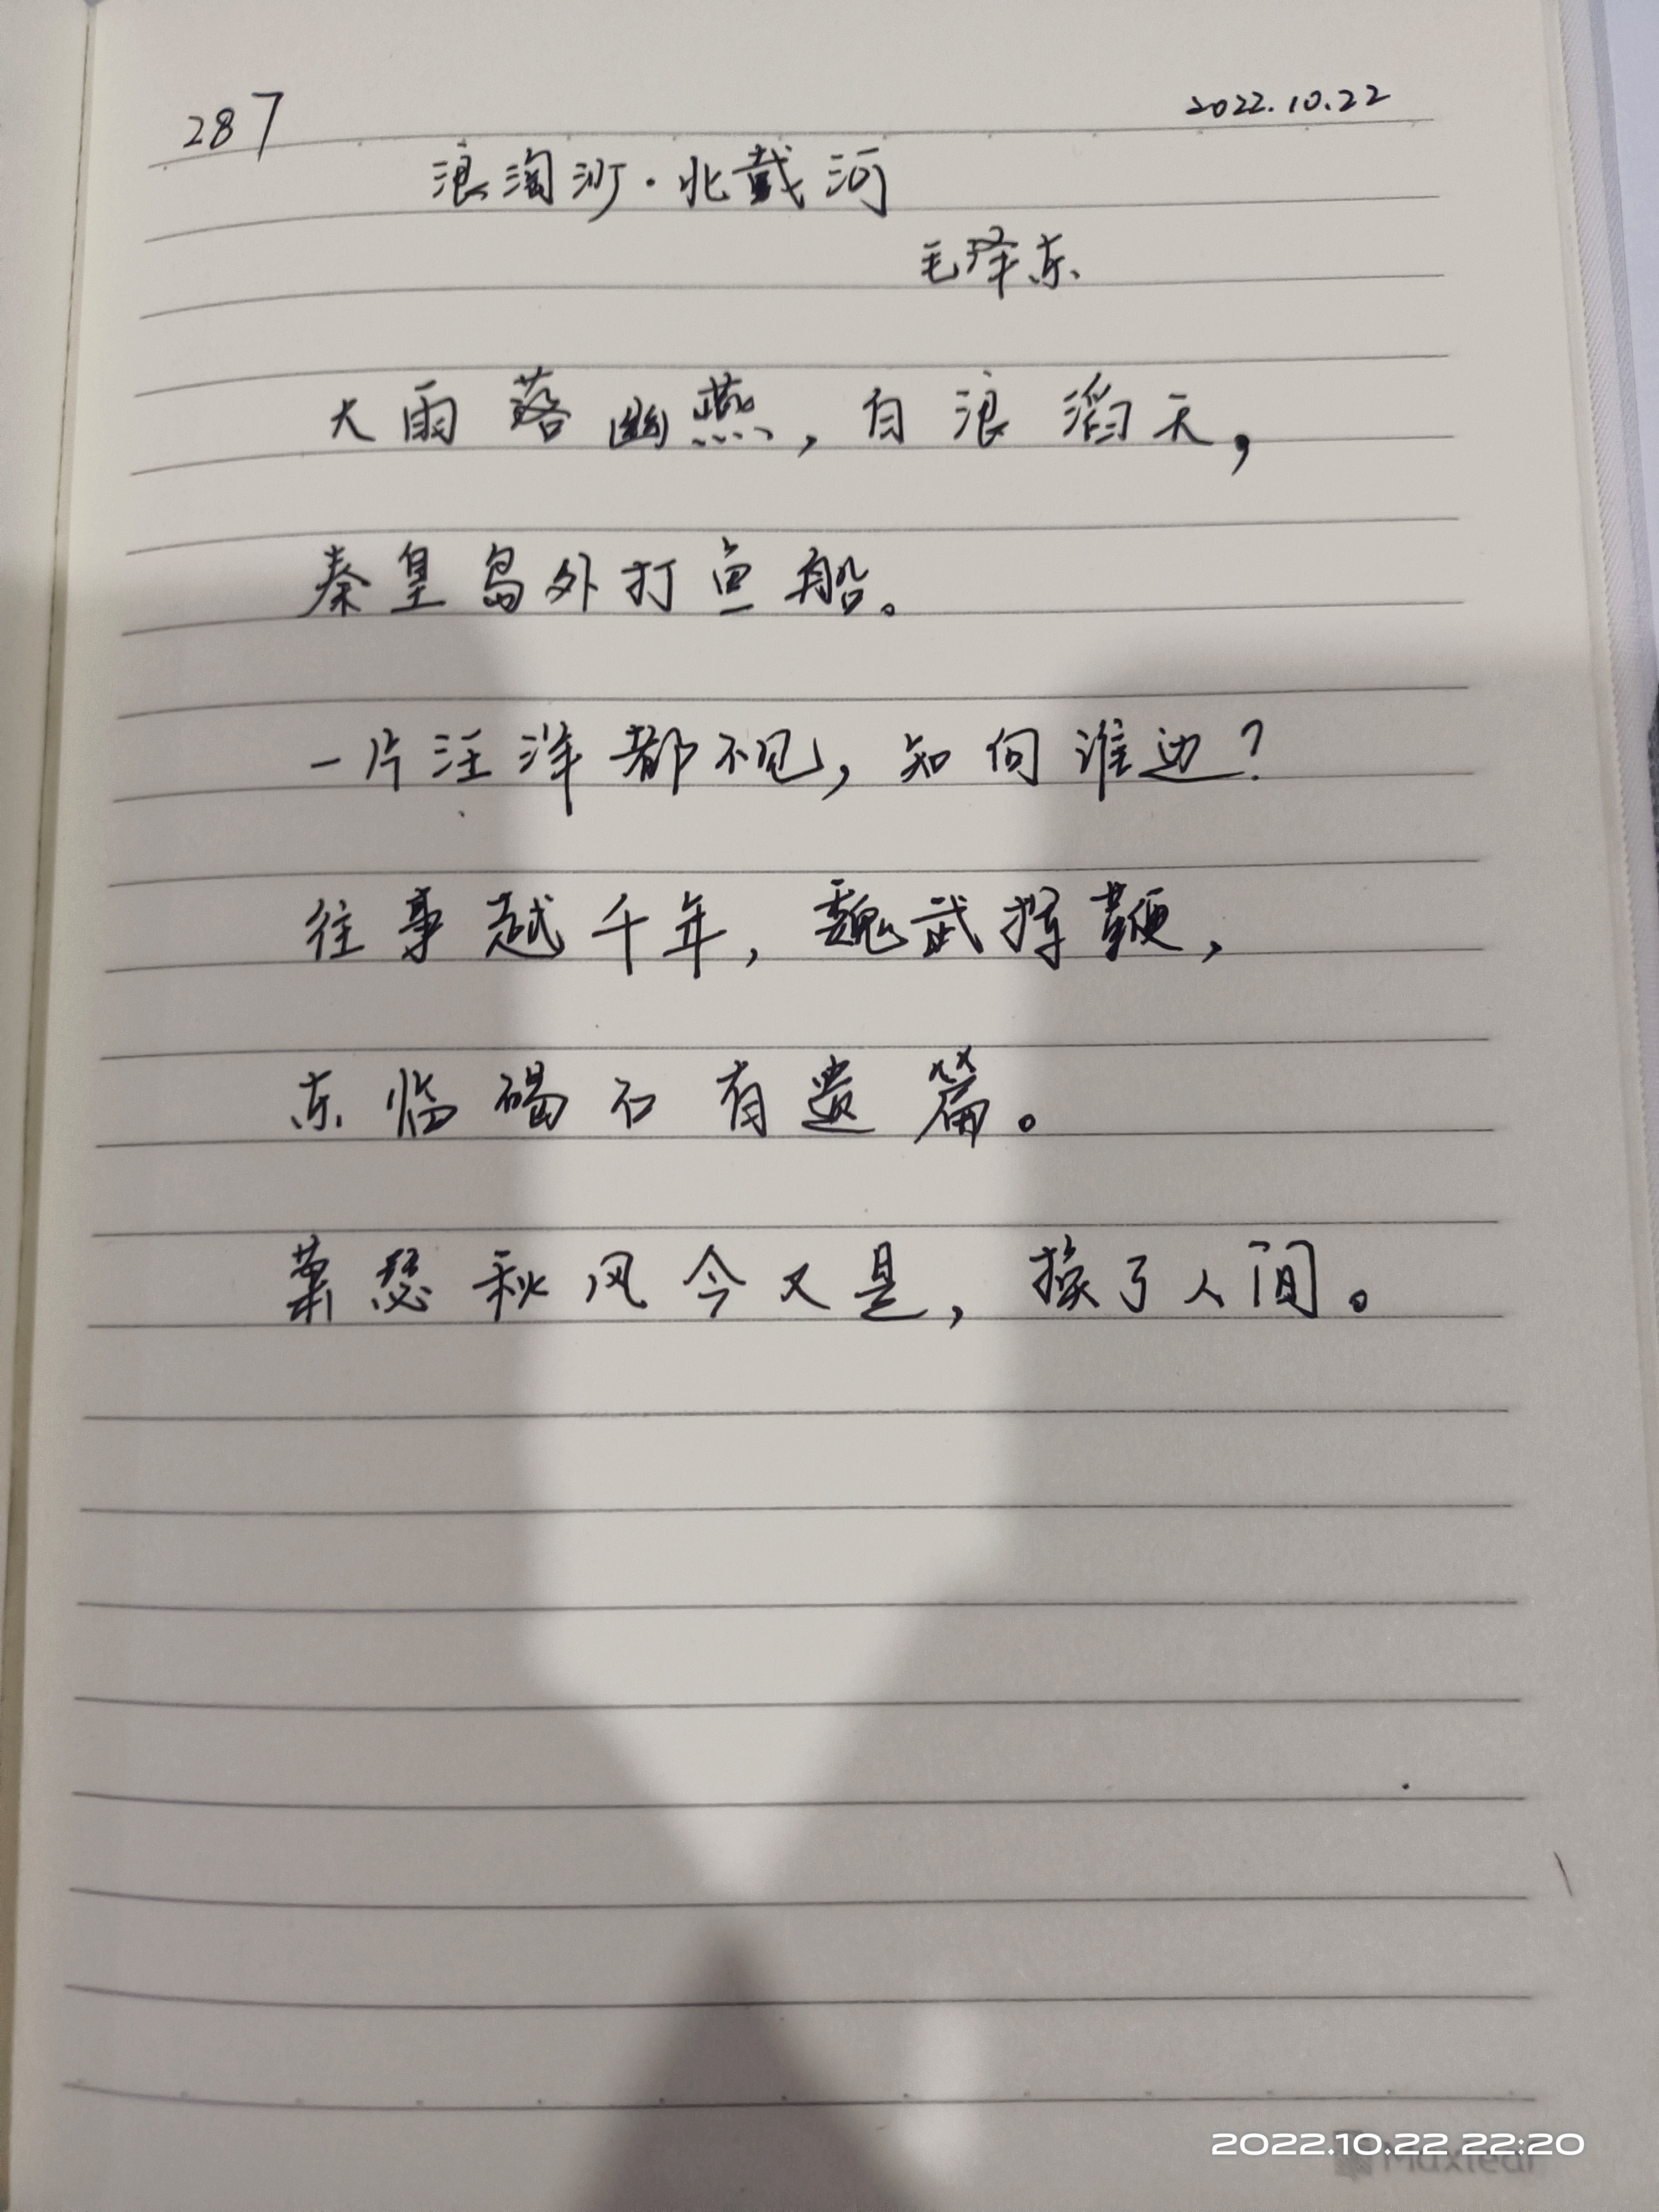 287 2022.10.22
浪淘沙·北戴河
毛泽东
大雨落幽燕，白浪滔天，
秦皇岛外打鱼船。
一片汪洋都不见，知向谁边？
往事越千年，魏武挥鞭，
东临碣石有遗篇。
萧瑟秋风今又是，换了人间。
2022.10.22 22:20